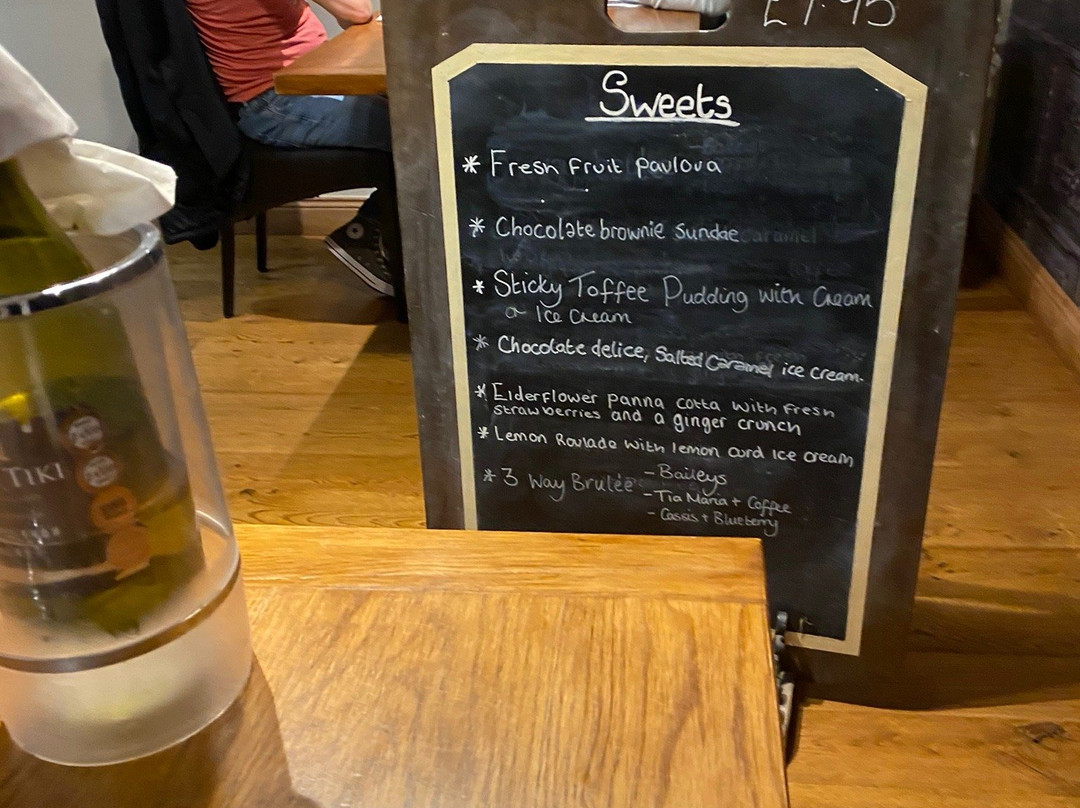 £7.95
Sweets
* Fresh Fruit pavlova
* Chocolate brownie sundae
* Sticky Toffee Pudding with Cream
or Ice Cream
* Chocolate delice, Salted Caramel ice cream.
* Elderflower panna cotta with Fresh
strawberries and a ginger crunch
* Lemon Roulade with lemon curd Ice cream
* 3 Way Brulée - Baileys
- Tia Maria + Coffee
- Cassis + Blueberry
TIKI